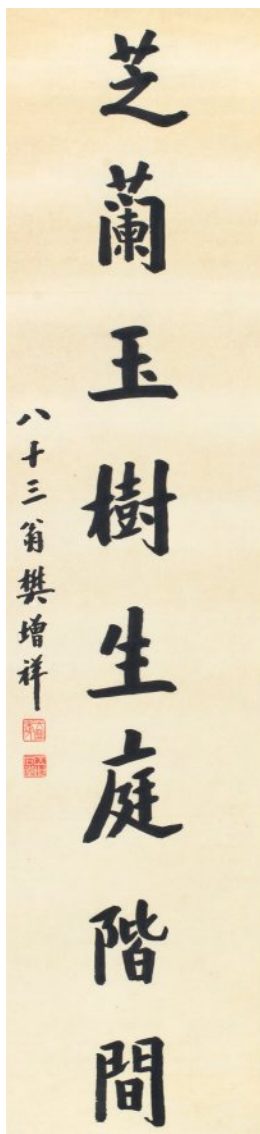 芝蘭玉樹生庭階間
八十三翁樊增祥